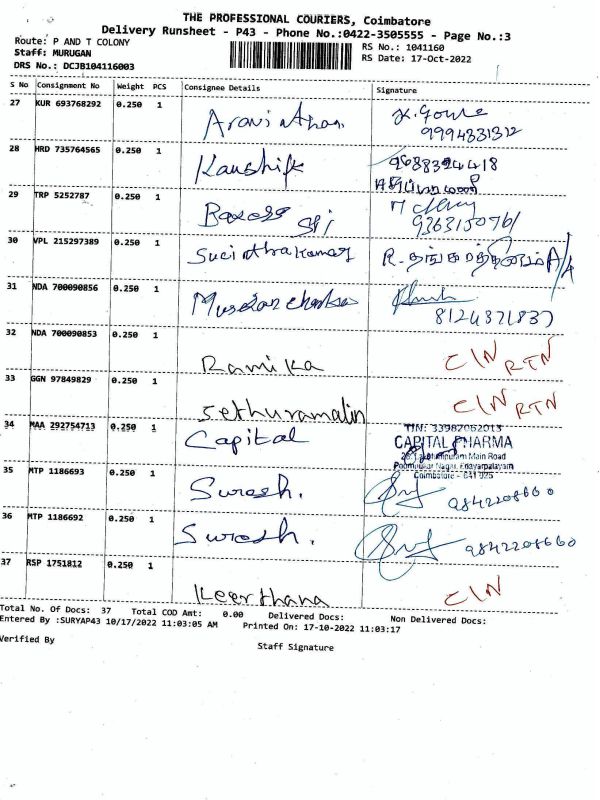 THE PROFESSIONAL COURIERS, Coimbatore
Delivery Runsheet - P43 - Phone No.:0422-3505555 - Page No.:3
Route: P AND T COLONY
Staff: MURUGAN
DRS No.: DCJB104116003
RS No.: 1041160
RS Date: 17-Oct-2022
S No Consignment No Weight PCS Consignee Details Signature
27 KUR 693768292 0.250 1
Aravinthan
9994331312
28 HRD 735764565 0.250 1
Kaushik
29 TRP 5252787 0.250 1
Sri
9363150761
30 VPL 215297389 0.250 1
31 NDA 700090856 0.250 1
8124871837
32 NDA 700090853 0.250 1
Ramika C/N RTN
33 GGN 97849829 0.250 1
Sethuramalin C/N RTN
34 MAA 292754713 0.250 1
Capital
TIN: 33987062013
CAPITAL PHARMA
Main Road
Nagar, Edayarpalayam
Coimbatore - 641 025
35 MTP 1186693 0.250 1
Suresh. 9842208660
36 MTP 1186692 0.250 1
Suresh. 9842208660
37 RSP 1751812 0.250 1
Keerthana C/N
Total No. Of Docs: 37 Total COD Amt: 0.00 Delivered Docs: Non Delivered Docs:
Entered By :SURYAP43 10/17/2022 11:03:05 AM Printed On: 17-10-2022 11:03:17
Verified By
Staff Signature